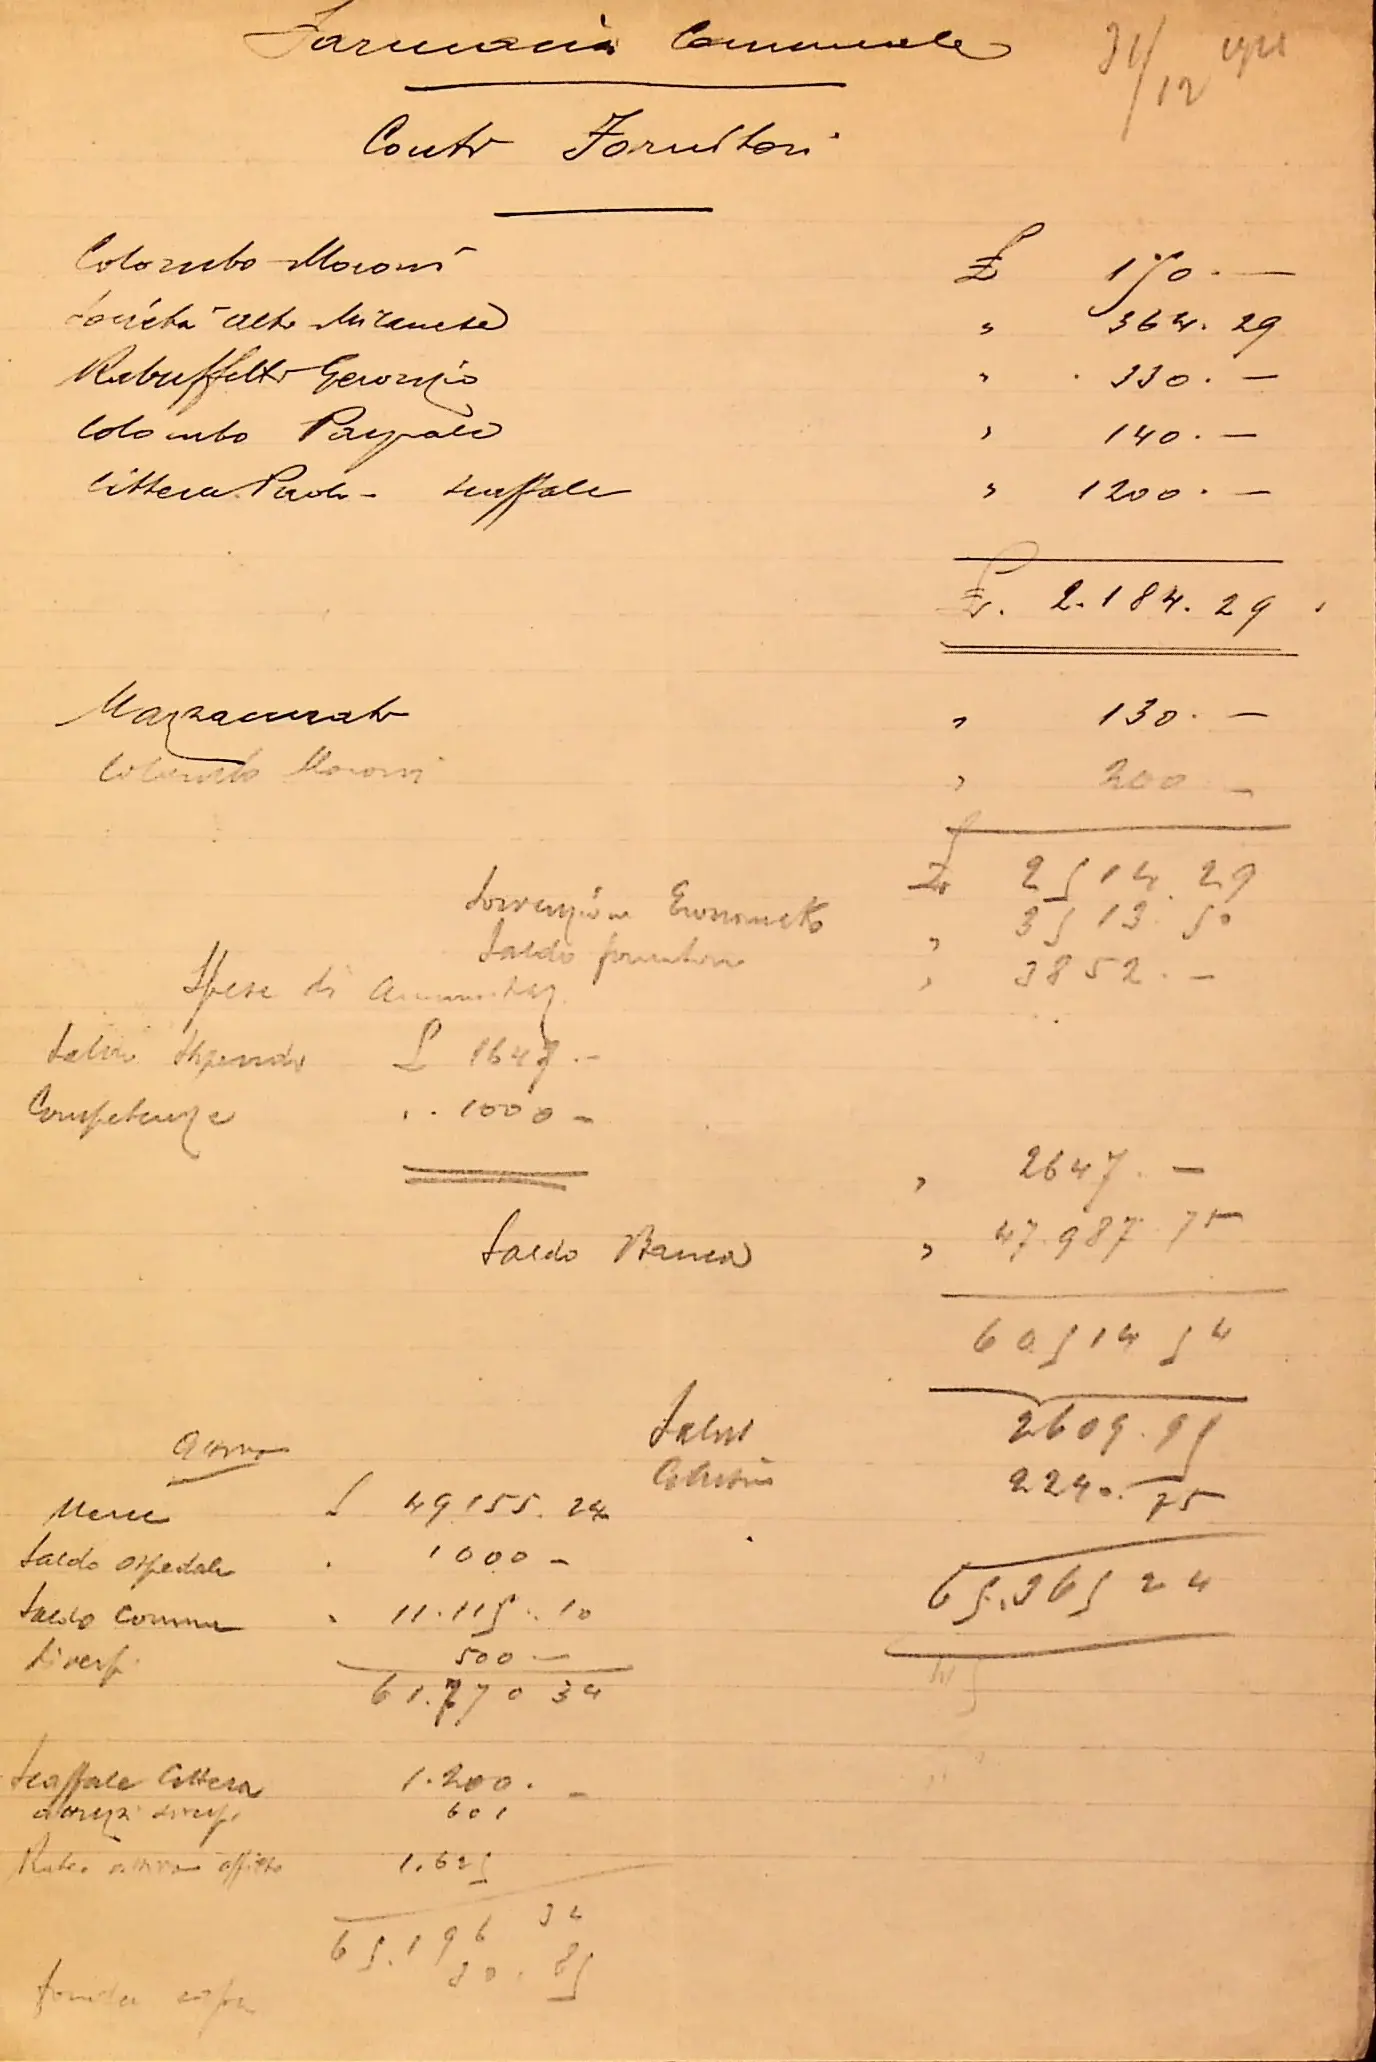 Farmacia Comunale
31/12 1921
Conto Fornitori
Colombo Moroni £ 150.—
Società Alto Milanese " 364.29
Rabuffetti Geronzio " 330.—
Colombo Pasquale " 140.—
Cittera Paolo - scaffale " 1200.—
£. 2.184.29
Mazzacurato " 130.—
Colombo Moroni " 200 —
£ 2514.29
Sovvenzione Economato " 3513.50
Saldo fornitori " 3852.—
Spese di
Salvi Stipendio £ 1647.—
Competenze " 1000 —
" 2647.—
Saldo Banca " 47.987.75
60514 54
Salvi 2609.95
2240.75
65.365 24
Attivo
Merce £ 49155.24
Saldo Ospedale " 1000 —
Saldo Comune " 11.115.10
Diversi 500 —
61.770 34
Scaffale Cittera 1.200.—
diversi 601
Rateo attivo affitto 1.625
65.196 34
30.85